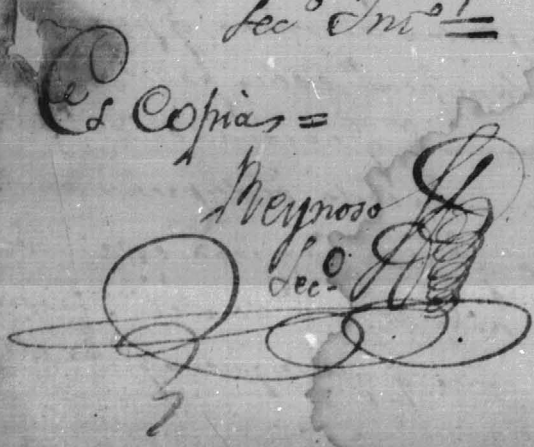 Sec.º Int.º =
Es Copia =
Reynoso
Sec.º